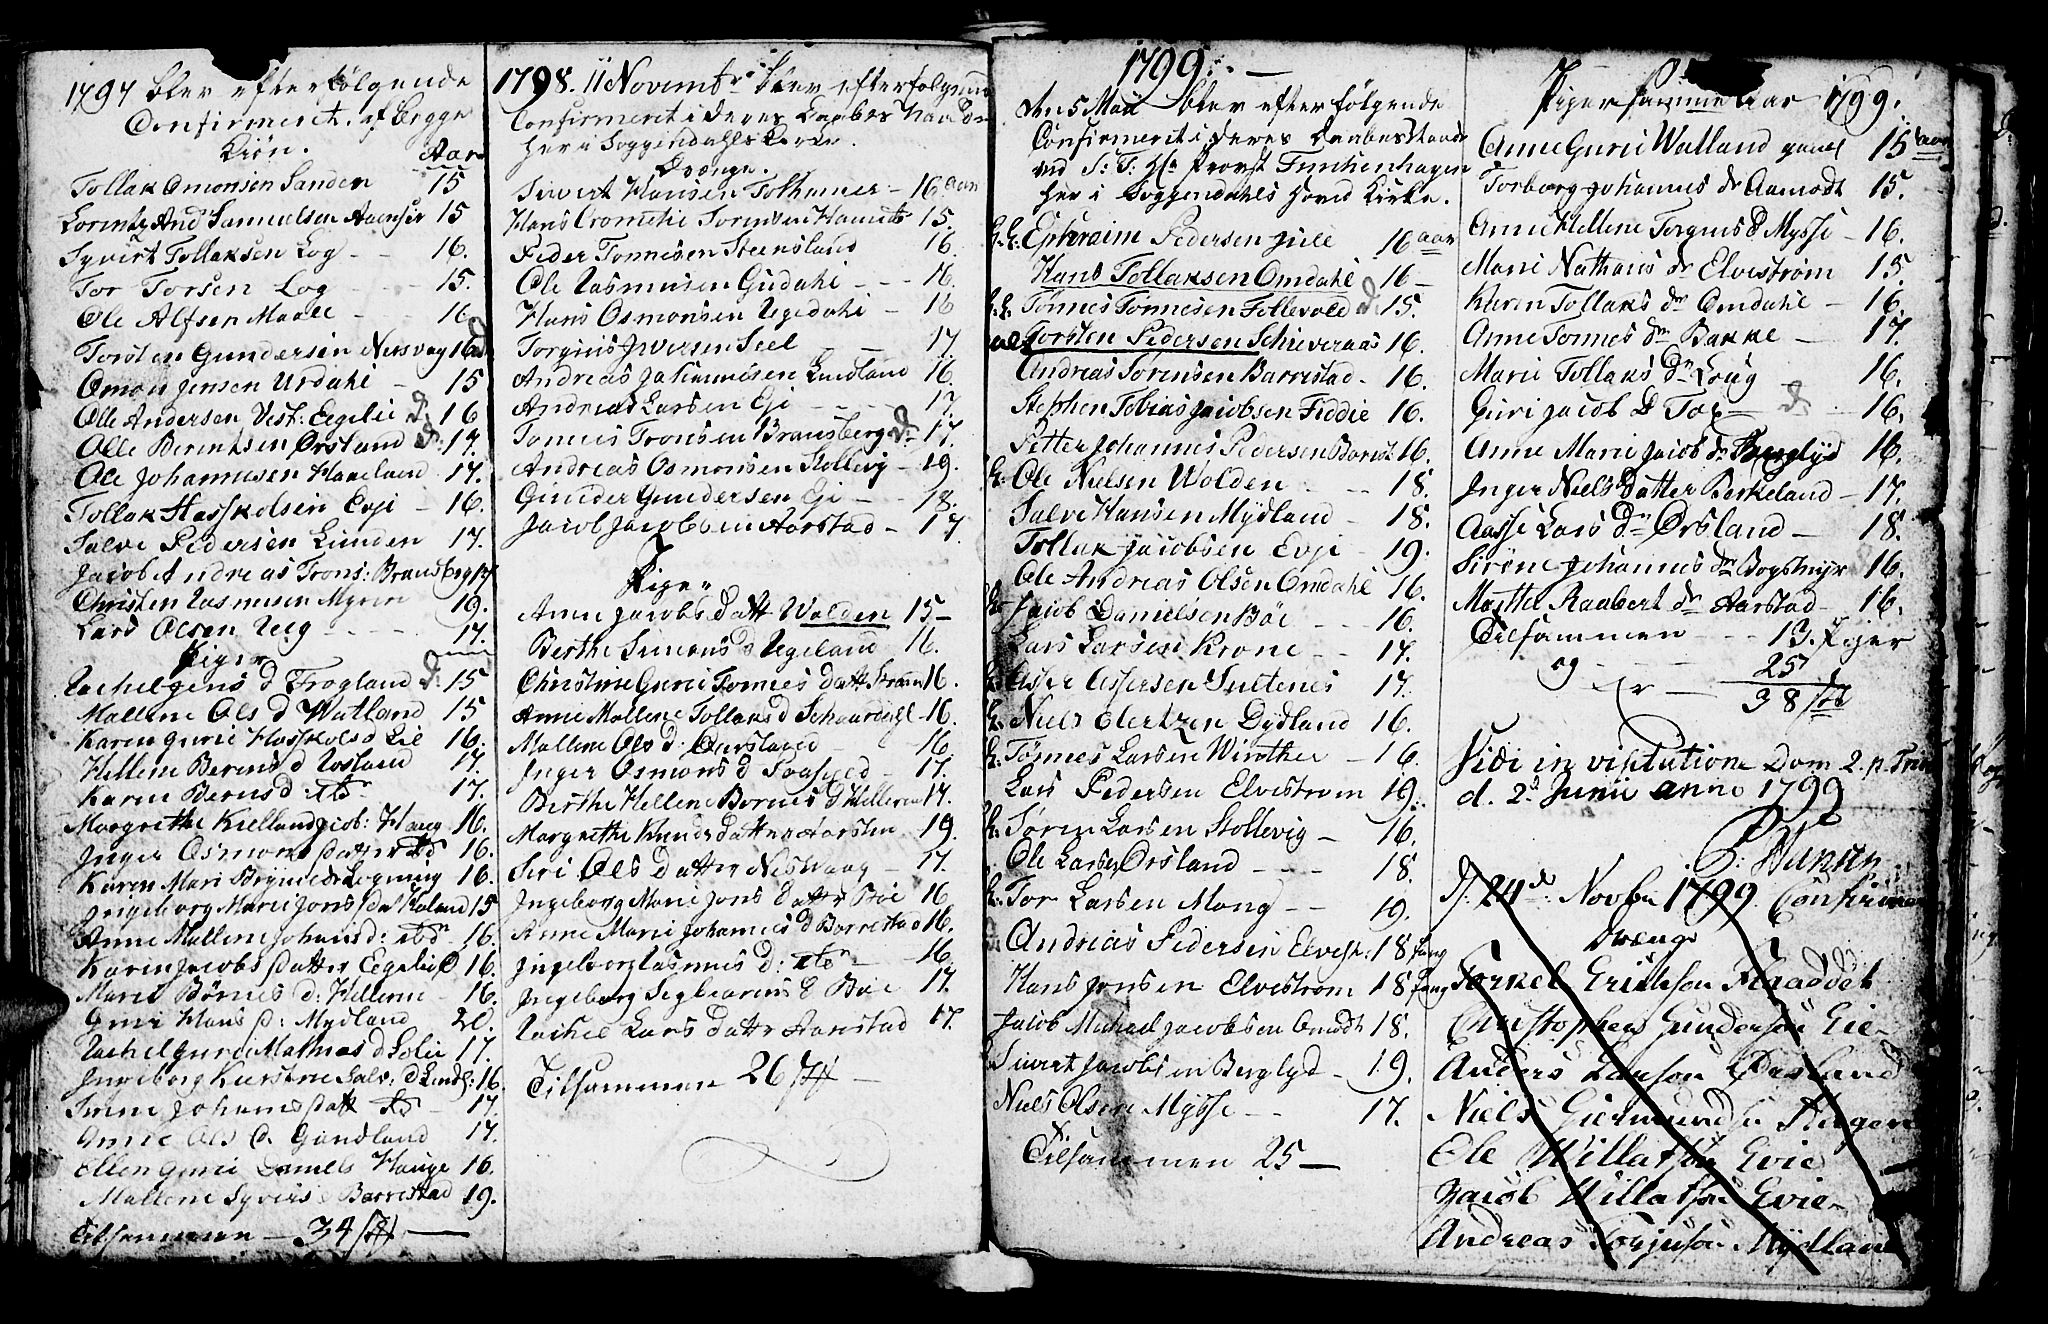 1797 blev efterfølgende
Confirmeret. af begge
Kiøn. Aar
Tollak Omonsen Sanden 15
Lorentz And Samuelsen Aaenser 15
Syvert Tollaksen Log - - 16.
Tor Torsen Log - - 15.
Ole Alfsen Maale - - 16
Torsten Gundersen Nesvog 16
Omon Jensen Urdahl - 15
Olle Andersen Vest: Eegelie d. 16
Olle Berentsen Ørsland d. 17.
Ole Johannesen Haaeland 17.
Tollak Haskolsen Evji - 16.
Salve Pedersen Lunden 17.
Jacob Andreas Trons: Bransberg 17
Christen Rasmusen Myren 19.
Lars Olsen Ueg - - - 17.
Piger
Rachel Jens d Frogland d: 15
Mallene Ols d Watland 15
Karen Gurie Haskols d Lie 16.
Hellene Berens d Rosland 17.
Karen Berns d: ito 17.
Margrethe Kielland Jacob: Haug 16.
Inger Osmons datter ito 16.
Karen Mari Børnie d Legning 16.
Ingeborg Marie Jons dat Høland 15
Anne Mallene Johans d: itto 16.
Karen Jacobs datter Eegelie d 16.
Maren Børnes d: Hellerne - 16.
Guri Hans d: Mydland 20.
Rachel Gurie Mathias d Solie 17.
Ingeborg Kierstine Salv: d Lund: 16.
Johans datt ito - 17.
Anne Ols d. Gundland 17.
Ellen Guri Daniels Hauge 16.
Mallene Syverts Barrestad 19.
Tilsammen - 34 st -
1798. 11 Novembr blev efterfølgende
Confirmeret i deres Daabes Naade
her i Soggendahls Kirke.
Drenge.
Sivert Hansen Tolhamer - 16 aar
Hans Crometie Sørensen Hamets 15.
Peder Tønnesen Steensland 16.
Ole Rasmusen Gudahl - - - 16.
Hans Osmonsen Regedahl - 16
Torgius Iversen Seel - - 17
Andreas Johannesen Lundland 16.
Andreas Larsen Eji - - - 17.
Tønnes Tronsen Bransberg d. 17.
Andreas Osmonsen Stollevig - 19.
Gunder Gundersen Eji - - 18.
Jacob Jacobsen Aarstad - 17.
Piger
Ane Jacobs datt Walden 15 -
Berthe Simons d Ugeland 16.
Christine Gurie Tønnes datt Strøm 16.
Anne Mallene Tollaks d Schaardahl - 16.
Mallene Ols d: Ørsland - 16.
Inger Osmons d - 17.
Berthe Hellene Bornes d Hellerne 17.
Margrethe Knuds datter Aarsten 19.
Siri Ols datter Neswaag - 17.
Ingeborg Marie Jons datt Bøe 16
Anne Marie Johannes d Barrestad 16.
Ingeborg Rasmus d: ito - 16.
Ingeborg Sigbiørns d Bøe 17.
Rachel Lars datt Aarstad 17.
Tilsammen 26 st -
1799. -
den 5 Maii blev efter følgende
Confirmeret i deres Daabes Naade
ved S: T: Hr Provst Finchenhagen
her i Soggendahls Hoved Kirke.
Ephraim Pedersen Jule 16 aar
Hans Tollaksen Omdahl 16 -
Tønnes Tønnesen Follevold d 15.
Torsten Pedersen Schieveraas 16.
Andreas Sørensen Barrestad - 16.
Stephen Tobias Jacobsen Fiddie 16.
Petter Johannes Pedersen Barist 16.
Ole Nielsen Wolden - - 18.
Salve Hansen Mydland - 18.
Tollak Jacobsen Evji - 19.
Ole Andreas Olsen Omdahl 16.
Jacob Danielsen Bøe - - 16.
Lars Larsen Krone - - 17.
Asser Assersen Sultenes 17.
Niels Olertzen Dydland 16.
Tønnes Larsen Wirother - 16.
Lars Pedersen Elvestrøm 19.
Søren Larsen Stollevig - 16.
Ole Larsen Ørsland - - - 18.
Tor Larsen Mong - - 19.
Andreas Pedersen Elvest: 18
Hans Jensen Elvestrøm 18
Jacob Michael Jacobsen Omodt 18.
Sivert Jacobsen Berglyd - 19.
Niels Olsen Mysse - - 17.
Tilsammen 25 -
Piger samme Aar 1799.
Anne Gurie Watland gamel 15 aar
Torborg Johannes dr Aamodt 15.
Anne Hellene Torgius d Mysse - 16.
Marie Nathans dr Elvestrøm 15.
Karen Tollaks dr Omdahl - 16
Anne Tønnes dr Bakke - 17.
Marie Tollaks dr Loug - 16.
Guri Jacob D Tox - d 16.
Anne Marie Jacob dr Berglyd 16.
Inger Niels datter Berkeland - 17.
Aasse Lars dr Ørsland - 18.
Sirene Johannes dr Bogstmyr 16.
Marthe Raabert dr Aarstad - 16.
Tilsammen - - - 13. Piger
og - - - 25
er - 38 st
Vidi in visitatione Dom 2. p. Trin
d. 2d Junii anno 1799
P: Hansen
D: 24de Novbr 1799. Confirm
Drenge
Torkel Erichson Fladdet
Christopher Gunderson Eie
Anders Larson Ørsland
Niels Giermundsen Hagen
Ole Willatson Evie
Jacob Willatson Evie
Andreas Torjuson Mydland